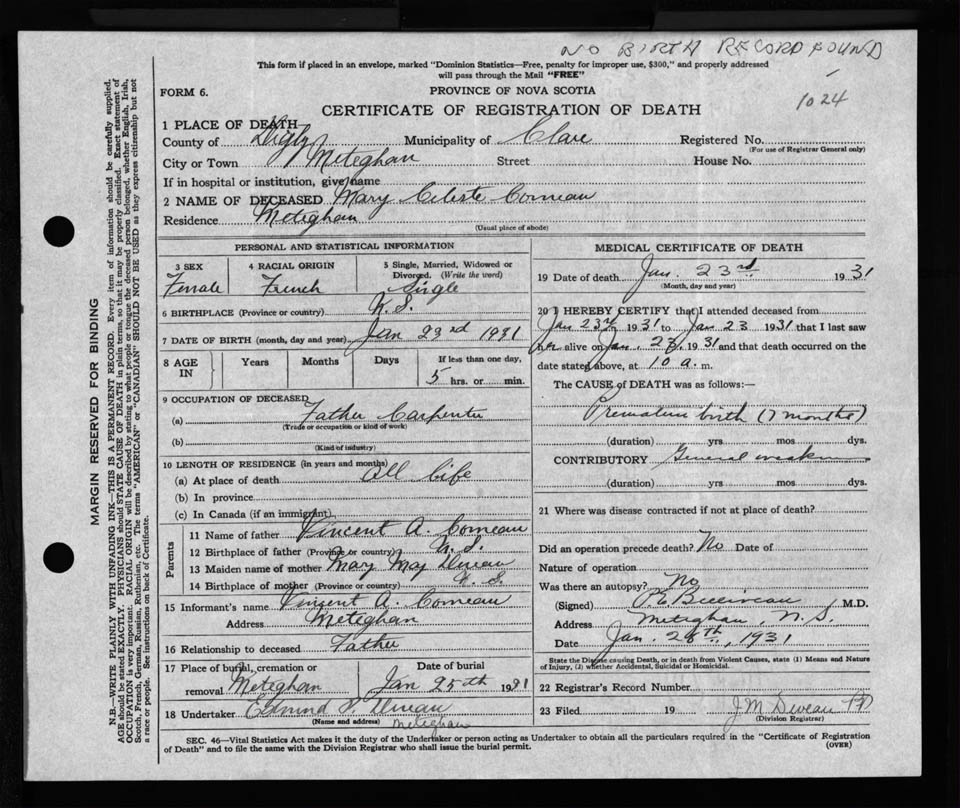 NO BIRTH RECORD FOUND
This form if placed in an envelope, marked "Dominion Statistics—Free, penalty for improper use, $300," and properly addressed
will pass through the Mail "FREE"
FORM 6.
PROVINCE OF NOVA SCOTIA
1024
CERTIFICATE OF REGISTRATION OF DEATH
1 PLACE OF DEATH
County of Digby Municipality of Clare Registered No.
(For use of Registrar General only)
City or Town Meteghan Street House No.
If in hospital or institution, give name
2 NAME OF DECEASED Mary Celeste Comeau
Residence Meteghan
(Usual place of abode)
PERSONAL AND STATISTICAL INFORMATION
3 SEX 4 RACIAL ORIGIN 5 Single, Married, Widowed or
Divorced. (Write the word)
Female French Single
6 BIRTHPLACE (Province or country) N.S.
7 DATE OF BIRTH (month, day and year) Jan 23rd 1931
8 AGE IN Years Months Days If less than one day,
5 hrs. or min.
9 OCCUPATION OF DECEASED
(a) Father Carpenter
(Trade or occupation or kind of work)
(b)
(Kind of industry)
10 LENGTH OF RESIDENCE (in years and months)
(a) At place of death All life
(b) In province
(c) In Canada (if an immigrant)
Parents
11 Name of father Vincent A. Comeau
12 Birthplace of father (Province or country) N.S.
13 Maiden name of mother Mary May Deveau
14 Birthplace of mother (Province or country) N.S.
15 Informant's name Vincent A. Comeau
Address Meteghan
16 Relationship to deceased Father
17 Place of burial, cremation or Date of burial
removal Meteghan Jan 25th 1931
18 Undertaker Edmund P. Deveau
(Name and address) Meteghan
MEDICAL CERTIFICATE OF DEATH
19 Date of death Jan. 23rd 1931
(Month, day and year)
20 I HEREBY CERTIFY that I attended deceased from
Jan 23rd 1931 to Jan 23 1931 that I last saw
her alive on Jan. 23, 1931 and that death occurred on the
date stated above, at 10 a. m.
The CAUSE of DEATH was as follows:—
Premature birth (7 months)
(duration) yrs mos dys.
CONTRIBUTORY General weakness
(duration) yrs. mos. dys.
21 Where was disease contracted if not at place of death?
Did an operation precede death? No Date of
Nature of operation
Was there an autopsy? No
(Signed) M.D.
Address Meteghan, N.S.
Date Jan. 28th, 1931
State the Disease causing Death, or in death from Violent Causes, state (1) Means and Nature
of Injury, (2) whether Accidental, Suicidal or Homicidal.
22 Registrar's Record Number
23 Filed 19 J M Deveau
(Division Registrar)
SEC. 46—Vital Statistics Act makes it the duty of the Undertaker or person acting as Undertaker to obtain all the particulars required in the "Certificate of Registration
of Death" and to file the same with the Division Registrar who shall issue the burial permit.
(OVER)
MARGIN RESERVED FOR BINDING
N.B.—WRITE PLAINLY WITH UNFADING INK—THIS IS A PERMANENT RECORD. Every item of information should be carefully supplied.
AGE should be stated EXACTLY. PHYSICIANS should STATE CAUSE OF DEATH in plain terms, so that it may be properly classified. Exact statement of
OCCUPATION is very important. RACIAL ORIGIN will be described by stating to what people or tongue the deceased person belonged, whether English, Irish,
Scotch, French, German, Russian, Ruthenian, etc. The terms "AMERICAN" or "CANADIAN" SHOULD NOT BE USED as they express citizenship but not
a race or people. See instructions on back of Certificate.